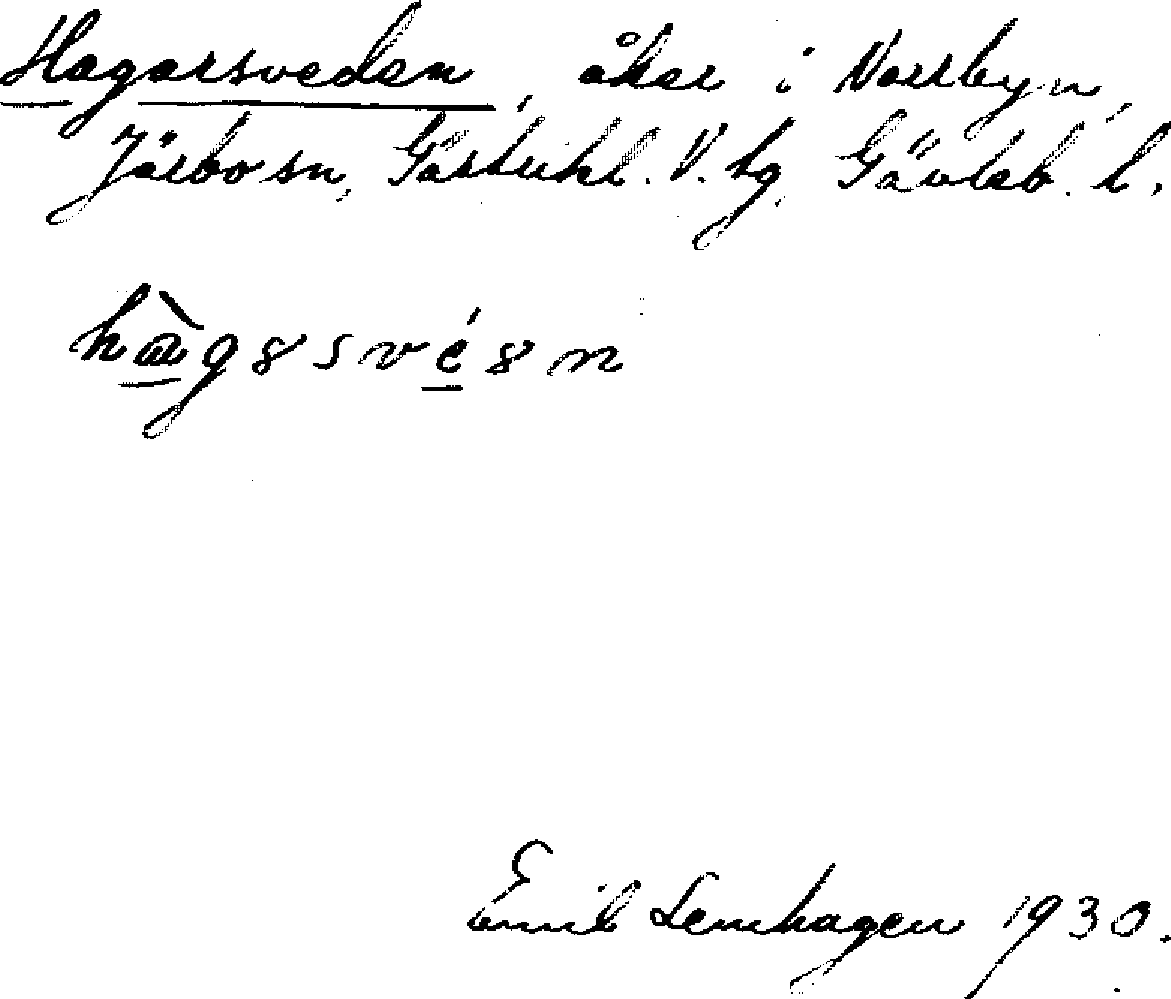 Hagarsveden, åker i Norrbyn,
Järbo sn, Gästrikl. V. tg, Gävleb. l.
Emil Lemhagen 1930.